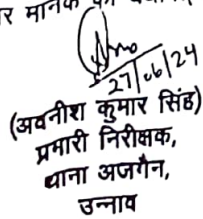 र मानक का
27/06/24
(अवनीश कुमार सिंह)
प्रभारी निरीक्षक,
थाना अजगैन,
उन्नाव